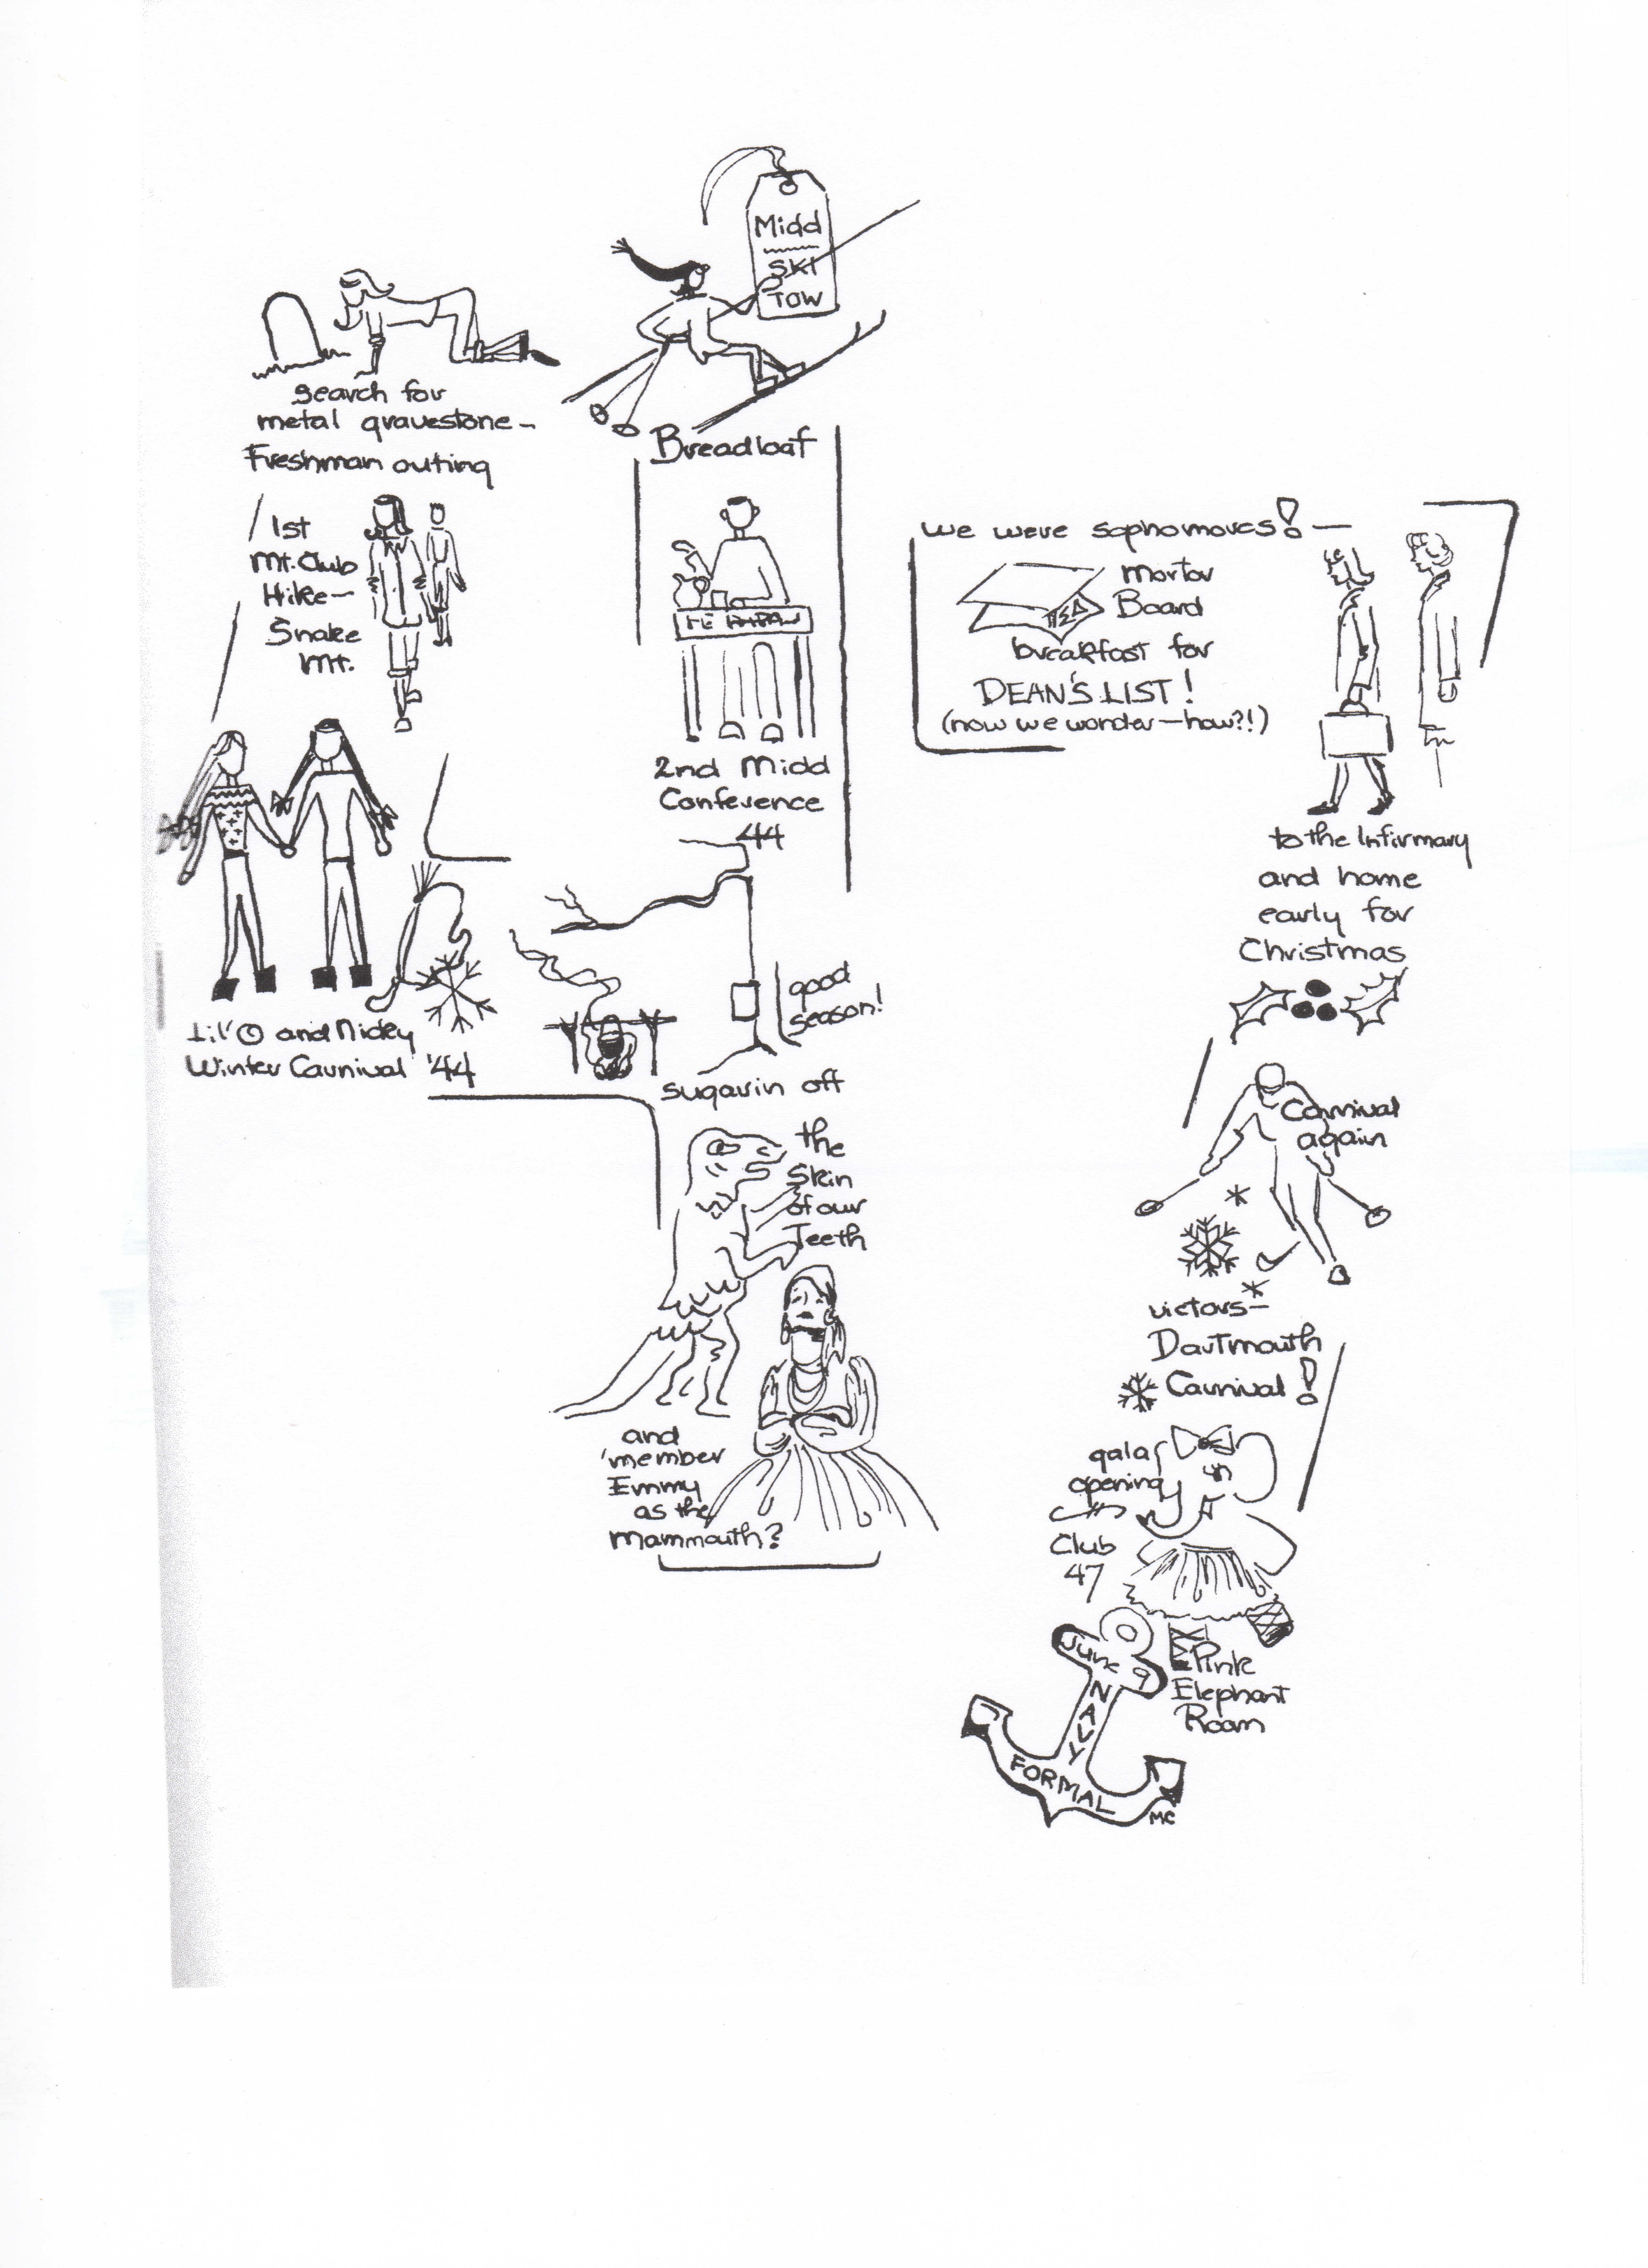 search for
metal gravestone –
Freshman outing
1st
Mt. Club
Hike –
Snake
Mt.
Lil' O and Mickey
Winter Carnival '44
Midd
SKI
TOW
Breadloaf
2nd Midd
Conference
44
good
season!
sugarin off
the
Skin
of our
Teeth
and
'member
Emmy
as the
Mammouth?
we were sophomores! –
Mortar
Board
breakfast for
DEAN'S LIST!
(now we wonder – how?!)
to the Infirmary
and home
early for
Christmas
Carnival
again
victors –
Dartmouth
Carnival!
gala
opening
Club
47
Pink
Elephant
Room
June 9
NAVY
FORMAL
MC